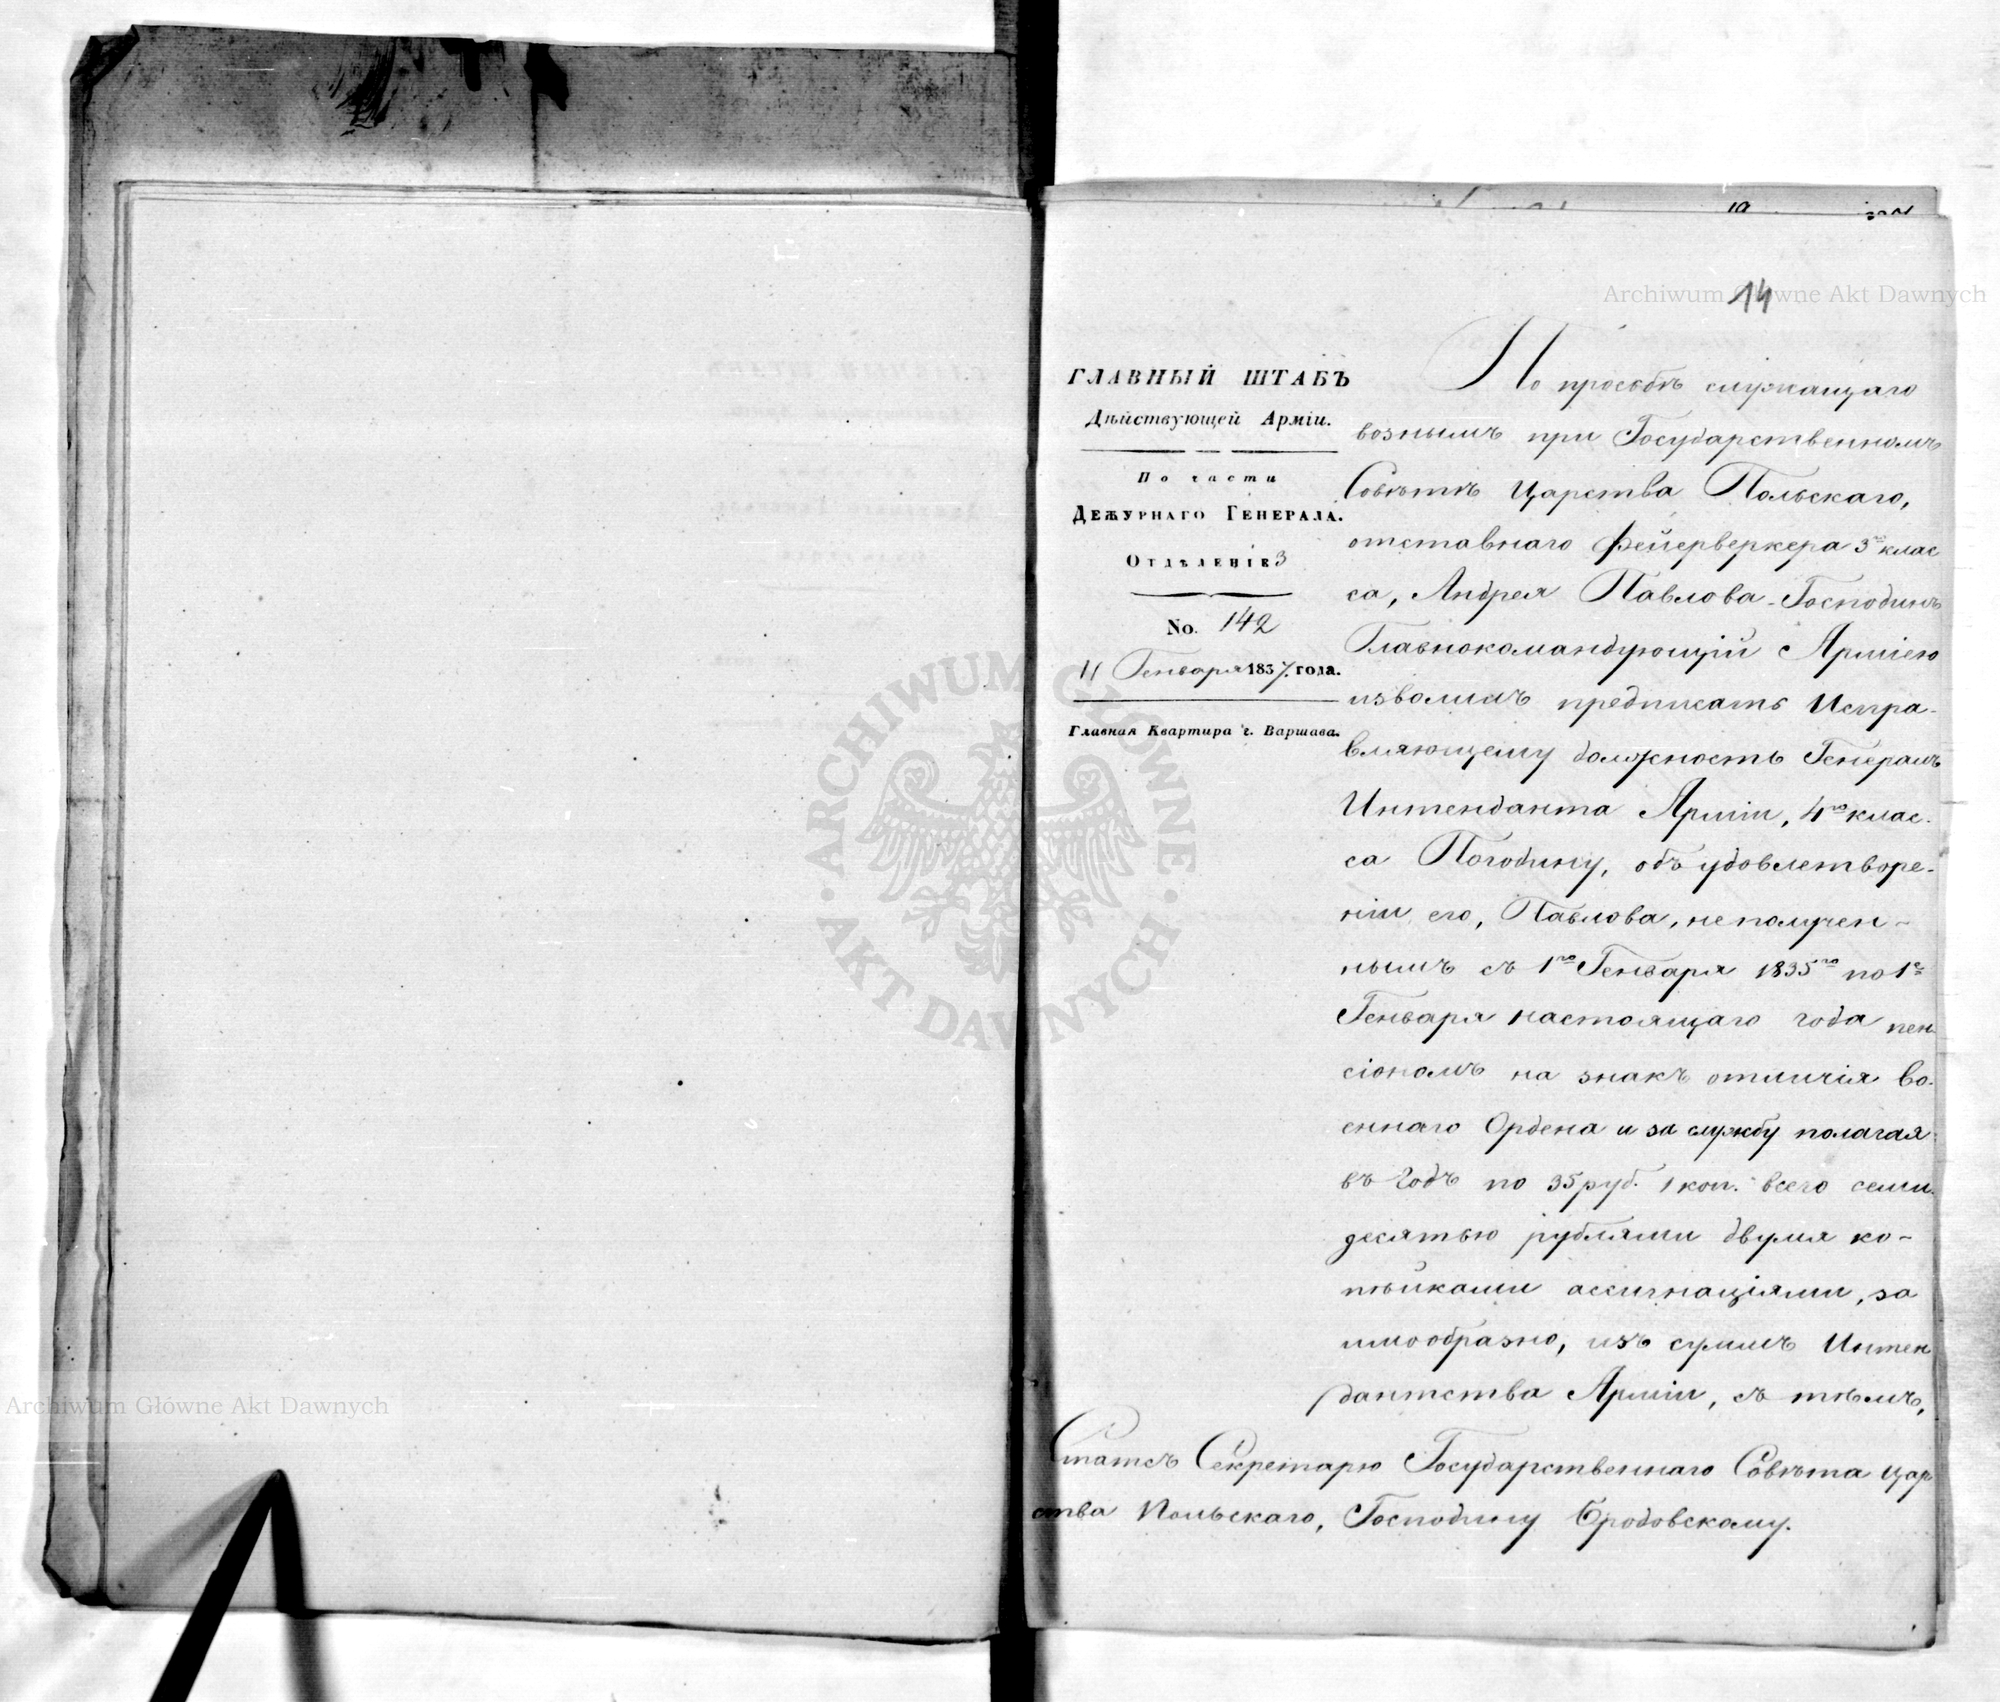 14
ГЛАВНЫЙ ШТАБЪ
Дѣйствующей Арміи.
По части
ДЕЖУРНАГО ГЕНЕРАЛА.
ОТДѢЛЕНІЕ 3
No. 142
11 Генваря 1837. года.
Главная Квартира г. Варшава.
По просьбѣ служащаго
вознымъ при Государственномъ
Совѣтѣ Царства Польскаго,
отставнаго Фейерверкера 3го клас
са, Андрея Павлова Господинъ
Главнокомандующій Арміею
изволилъ предписать Испра-
вляющему должность Генералъ
Интенданта Арміи, 4го клас-
са Погодину, объ удовлетворе-
ніи его, Павлова, неполучен-
нымъ съ 1го Генваря 1835го по 1е
Генваря настоящаго года пен
сіономъ на знакъ отличія во-
еннаго Ордена и за службу полагая
въ годъ по 35 руб. 1 коп. всего семи
десятью рублями двумя ко-
пѣйками ассигнаціями, за
имообразно, изъ суммъ Интен
дантства Арміи, съ тѣмъ,
Статсъ Секретарю Государственнаго Совѣта Цар
ства Польскаго, Господину Бродовскому.
Archiwum Główne Akt Dawnych
Archiwum Główne Akt Dawnych
ARCHIWUM GŁÓWNE · AKT DAWNYCH ·